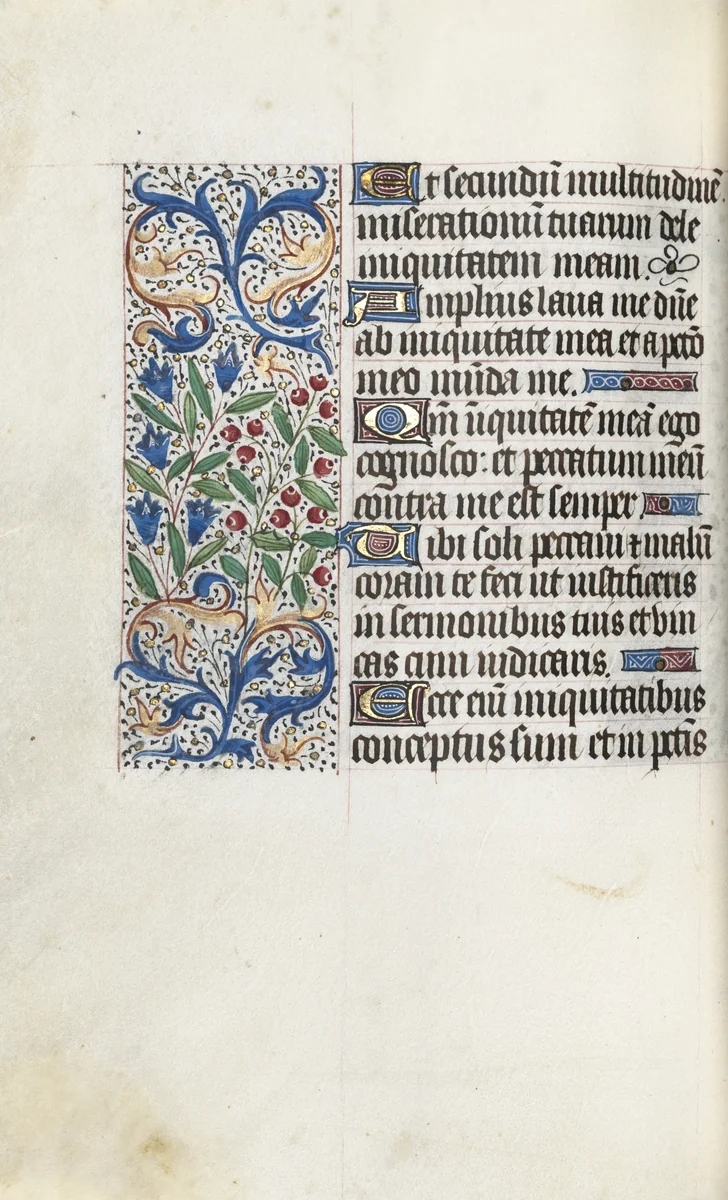 Et secundū multitudinē
miserationū tuarum dele
iniquitatem meam.
Amplius laua me dn̄e
ab iniquitate mea et a pctō
meo mūda me.
Qm̄ īiquitatē meā ego
cognosco: et peccatum meū
contra me est semper.
Tibi soli peccaui ⁊ malū
coram te feci ut iustificeris
in sermonibus tuis et vin
cas cum iudicaris.
Ecce eni̅ iniquitatibus
conceptus sum et in pctīs